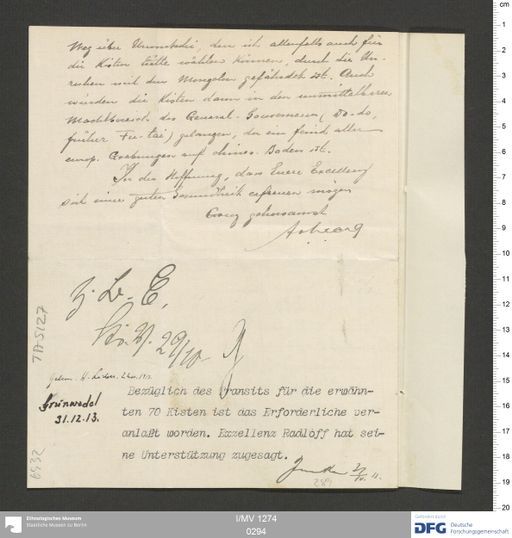 Weg über Urumtschi, den ich allenfalls auch für
die Kisten hätte wählen können, durch die Un-
ruhen mit den Mongolen gefährdet ist. Auch
würden die Kisten dann in den unmittelbaren
Machtbereich des General-Gouverneurs (
früher Fu-tai) gelangen, der ein Feind aller
europ. Grabungen auf chines. Boden ist.
In der Hoffnung, dass Euere Excellenz
sich einer guten Gesundheit erfreuen mögen
Euer gehorsamst
z. d. A.
29/10
TA 5127
Grünwedel
31.12.13.
Bezüglich des Transits für die erwähn-
ten 70 Kisten ist das Erforderliche ver-
anlaßt worden. Exzellenz Radloff hat sei-
ne Unterstützung zugesagt.
289
Ethnologisches Museum
Staatliche Museen zu Berlin
I/MV 1274
0294
Gefördert durch
DFG Deutsche
Forschungsgemeinschaft
cm
1
2
3
4
5
6
7
8
9
10
11
12
13
14
15
16
17
18
19
20